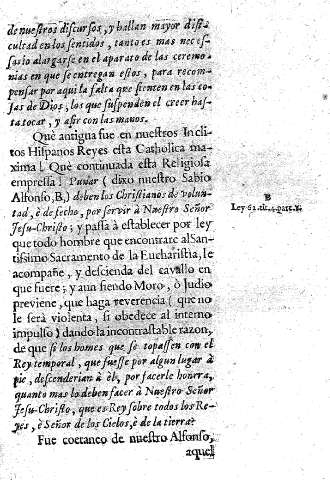 de nuestros discursos, y hallan mayor difi-
cultad en los sentidos, tanto es mas neces-
sario alargarse en el aparato de las ceremo-
nias en que se entregan estos, para recom-
pensar por aqui la falta que sienten en las co-
sas de Dios, los que suspenden el creer has-
ta tocar, y asir con las manos.
Què antigua fue en nuestros Incli-
tos Hispanos Reyes esta Catholica ma-
xima! Què continuada esta Religiosa
empressa! Punar (dixo nuestro Sabio
Alfonso, B,) deben los Christianos de volun-
tad, è de fecho, por servir à Nuestro Señor
Jesu-Christo; y passa à establecer por ley
que todo hombre que encontrare al San-
tissimo Sacramento de la Eucharistia, le
acompañe, y descienda del cavallo en
que fuere; y aun siendo Moro, ò Judio
previene, que haga reverencia (que no
le serà violenta, si obedece al interno
impulso) dando la incontrastable razon,
de que si los homes que se topassen con el
Rey temporal, que fuesse por algun lugar à
pie, descenderian à èl, por facerle honrra,
quanto mas lo deben facer à Nuestro Señor
Jesu-Christo, que es Rey sobre todos los Re-
yes, è Señor de los Cielos, è de la tierra?
Fue coetaneo de nuestro Alfonso,
aquel
B
Ley 62. tit. 4. part. 1.